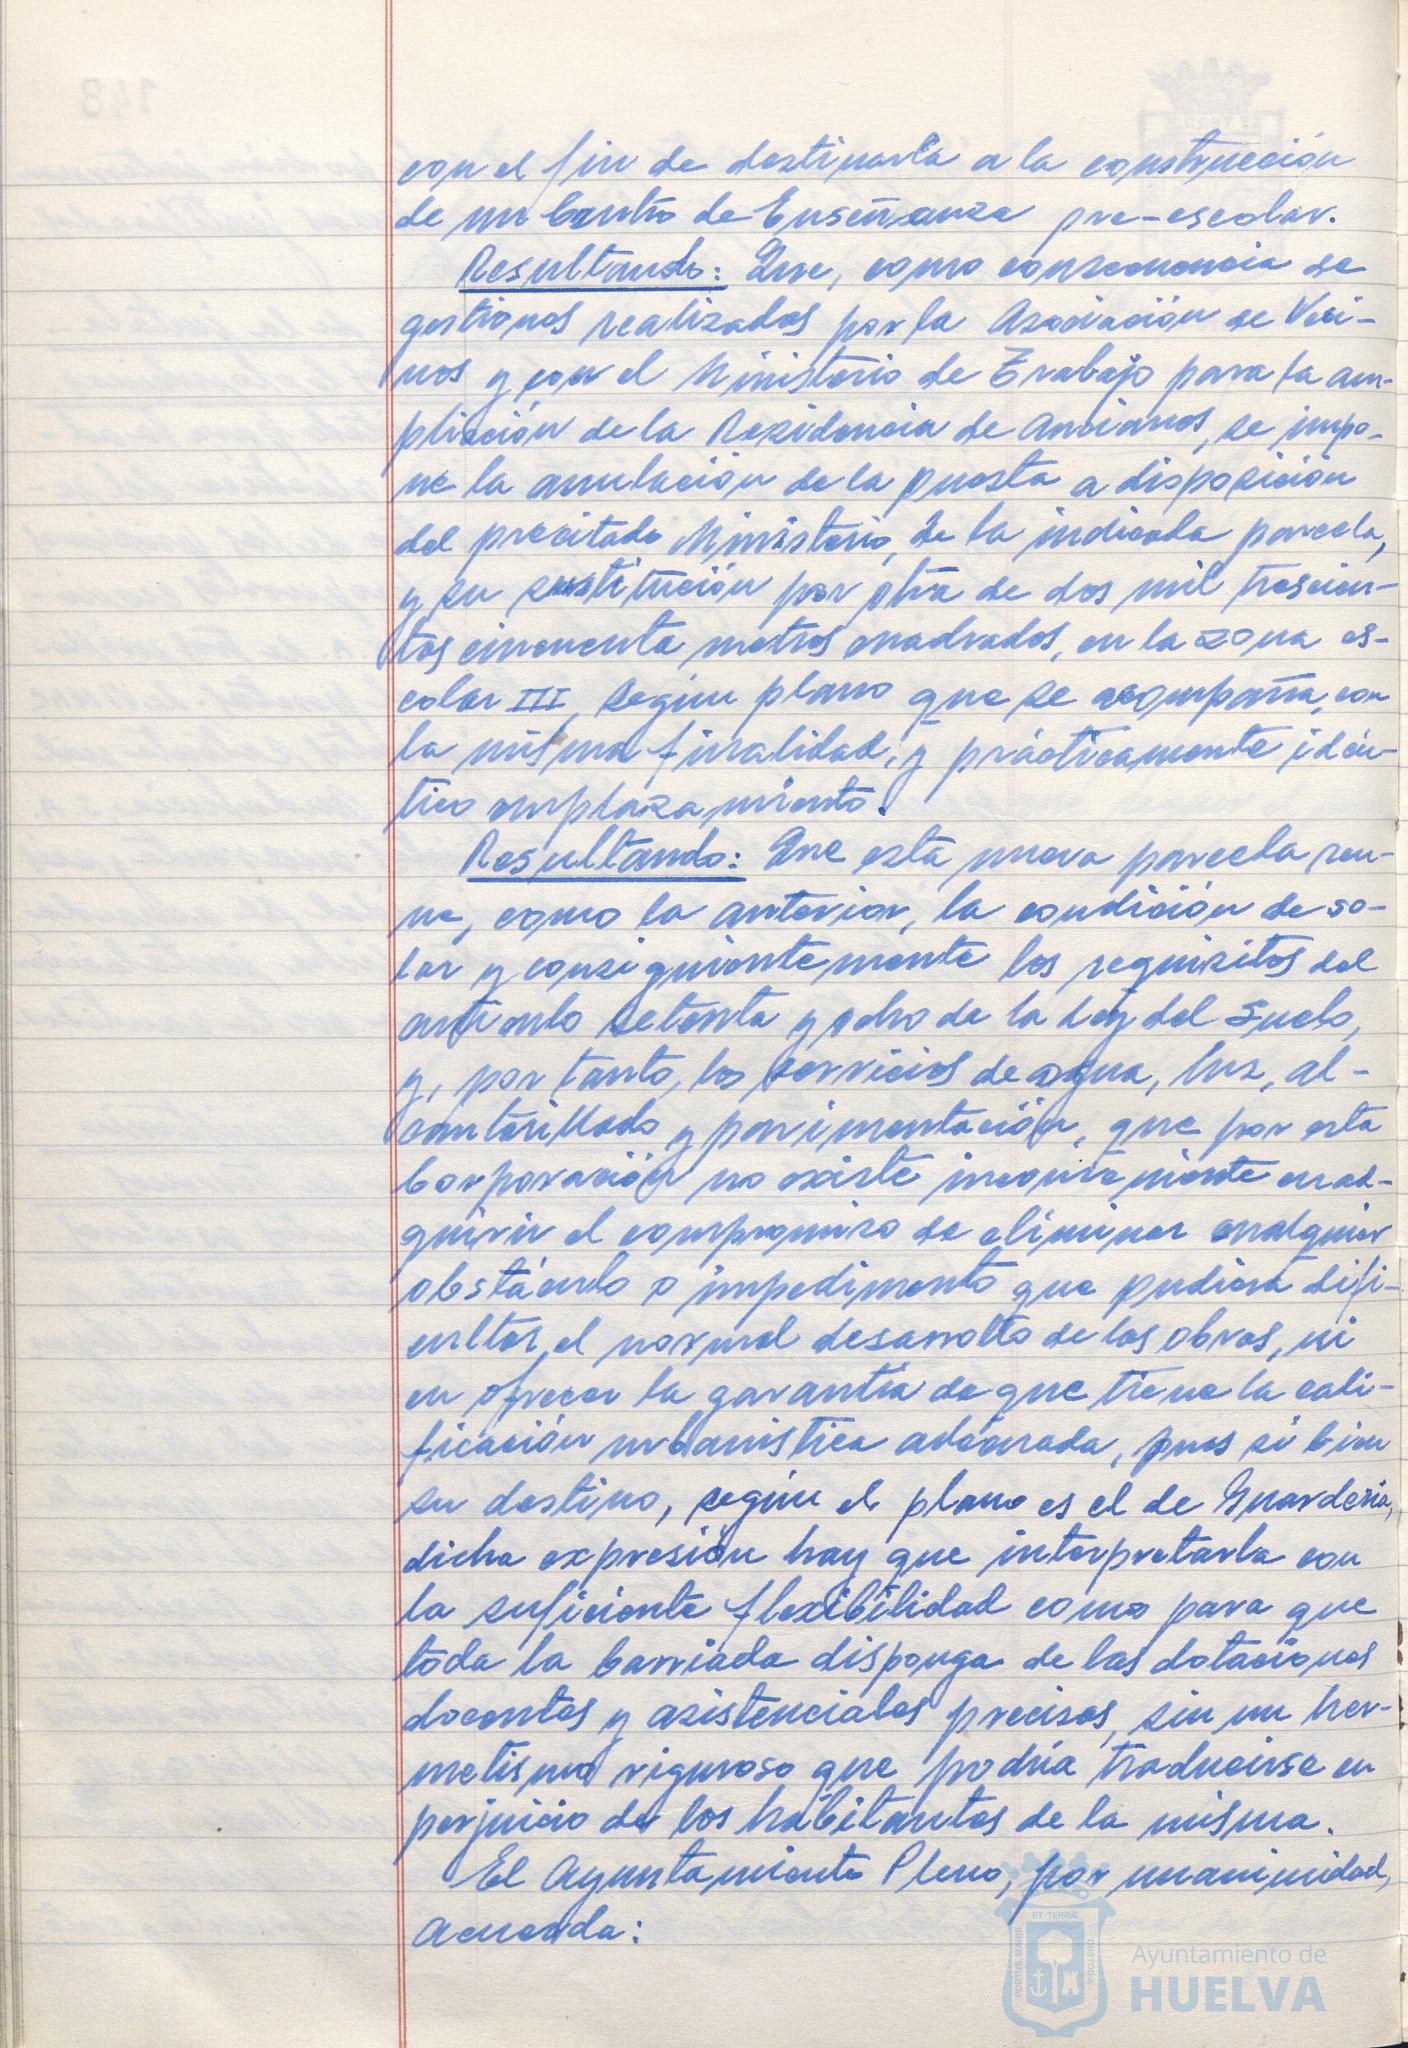 con el fin de destinarla a la construcción
de un Centro de Enseñanza pre-escolar.
Resultando: Que, como consecuencia de
gestiones realizadas por la Asociación de Veci-
nos y con el Ministerio de Trabajo para la am-
pliación de la Residencia de Ancianos, se impo-
ne la anulación de la puesta a disposición
del precitado Ministerio, de la indicada parcela,
y su sustitución por otra de dos mil trescien-
tos cincuenta metros cuadrados, en la zona es-
colar III, según plano que se acompaña, con
la misma finalidad, y prácticamente idén-
tico emplazamiento.
Resultando: Que esta nueva parcela reu-
ne, como la anterior, la condición de so-
lar y consiguientemente los requisitos del
artículo setenta y ocho de la Ley del Suelo,
y, por tanto, los servicios de agua, luz, al-
cantarillado y pavimentación, que por esta
Corporación no existe inconveniente en ad-
quirir el compromiso de eliminar cualquier
obstáculo o impedimento que pudiera difi-
cultar el normal desarrollo de las obras, ni
en ofrecer la garantía de que tiene la cali-
ficación urbanística adecuada, pues si bien
su destino, según el plano es el de Guardería,
dicha expresión hay que interpretarla con
la suficiente flexibilidad como para que
toda la barriada disponga de las dotaciones
docentes y asistenciales precisas, sin un her-
metismo riguroso que podría traducirse en
perjuicio de los habitantes de la misma.
El Ayuntamiento Pleno, por unanimidad,
acuerda:
PORTUS MARIS
ET TERRÆ
CUSTODIA
Ayuntamiento de
HUELVA
148